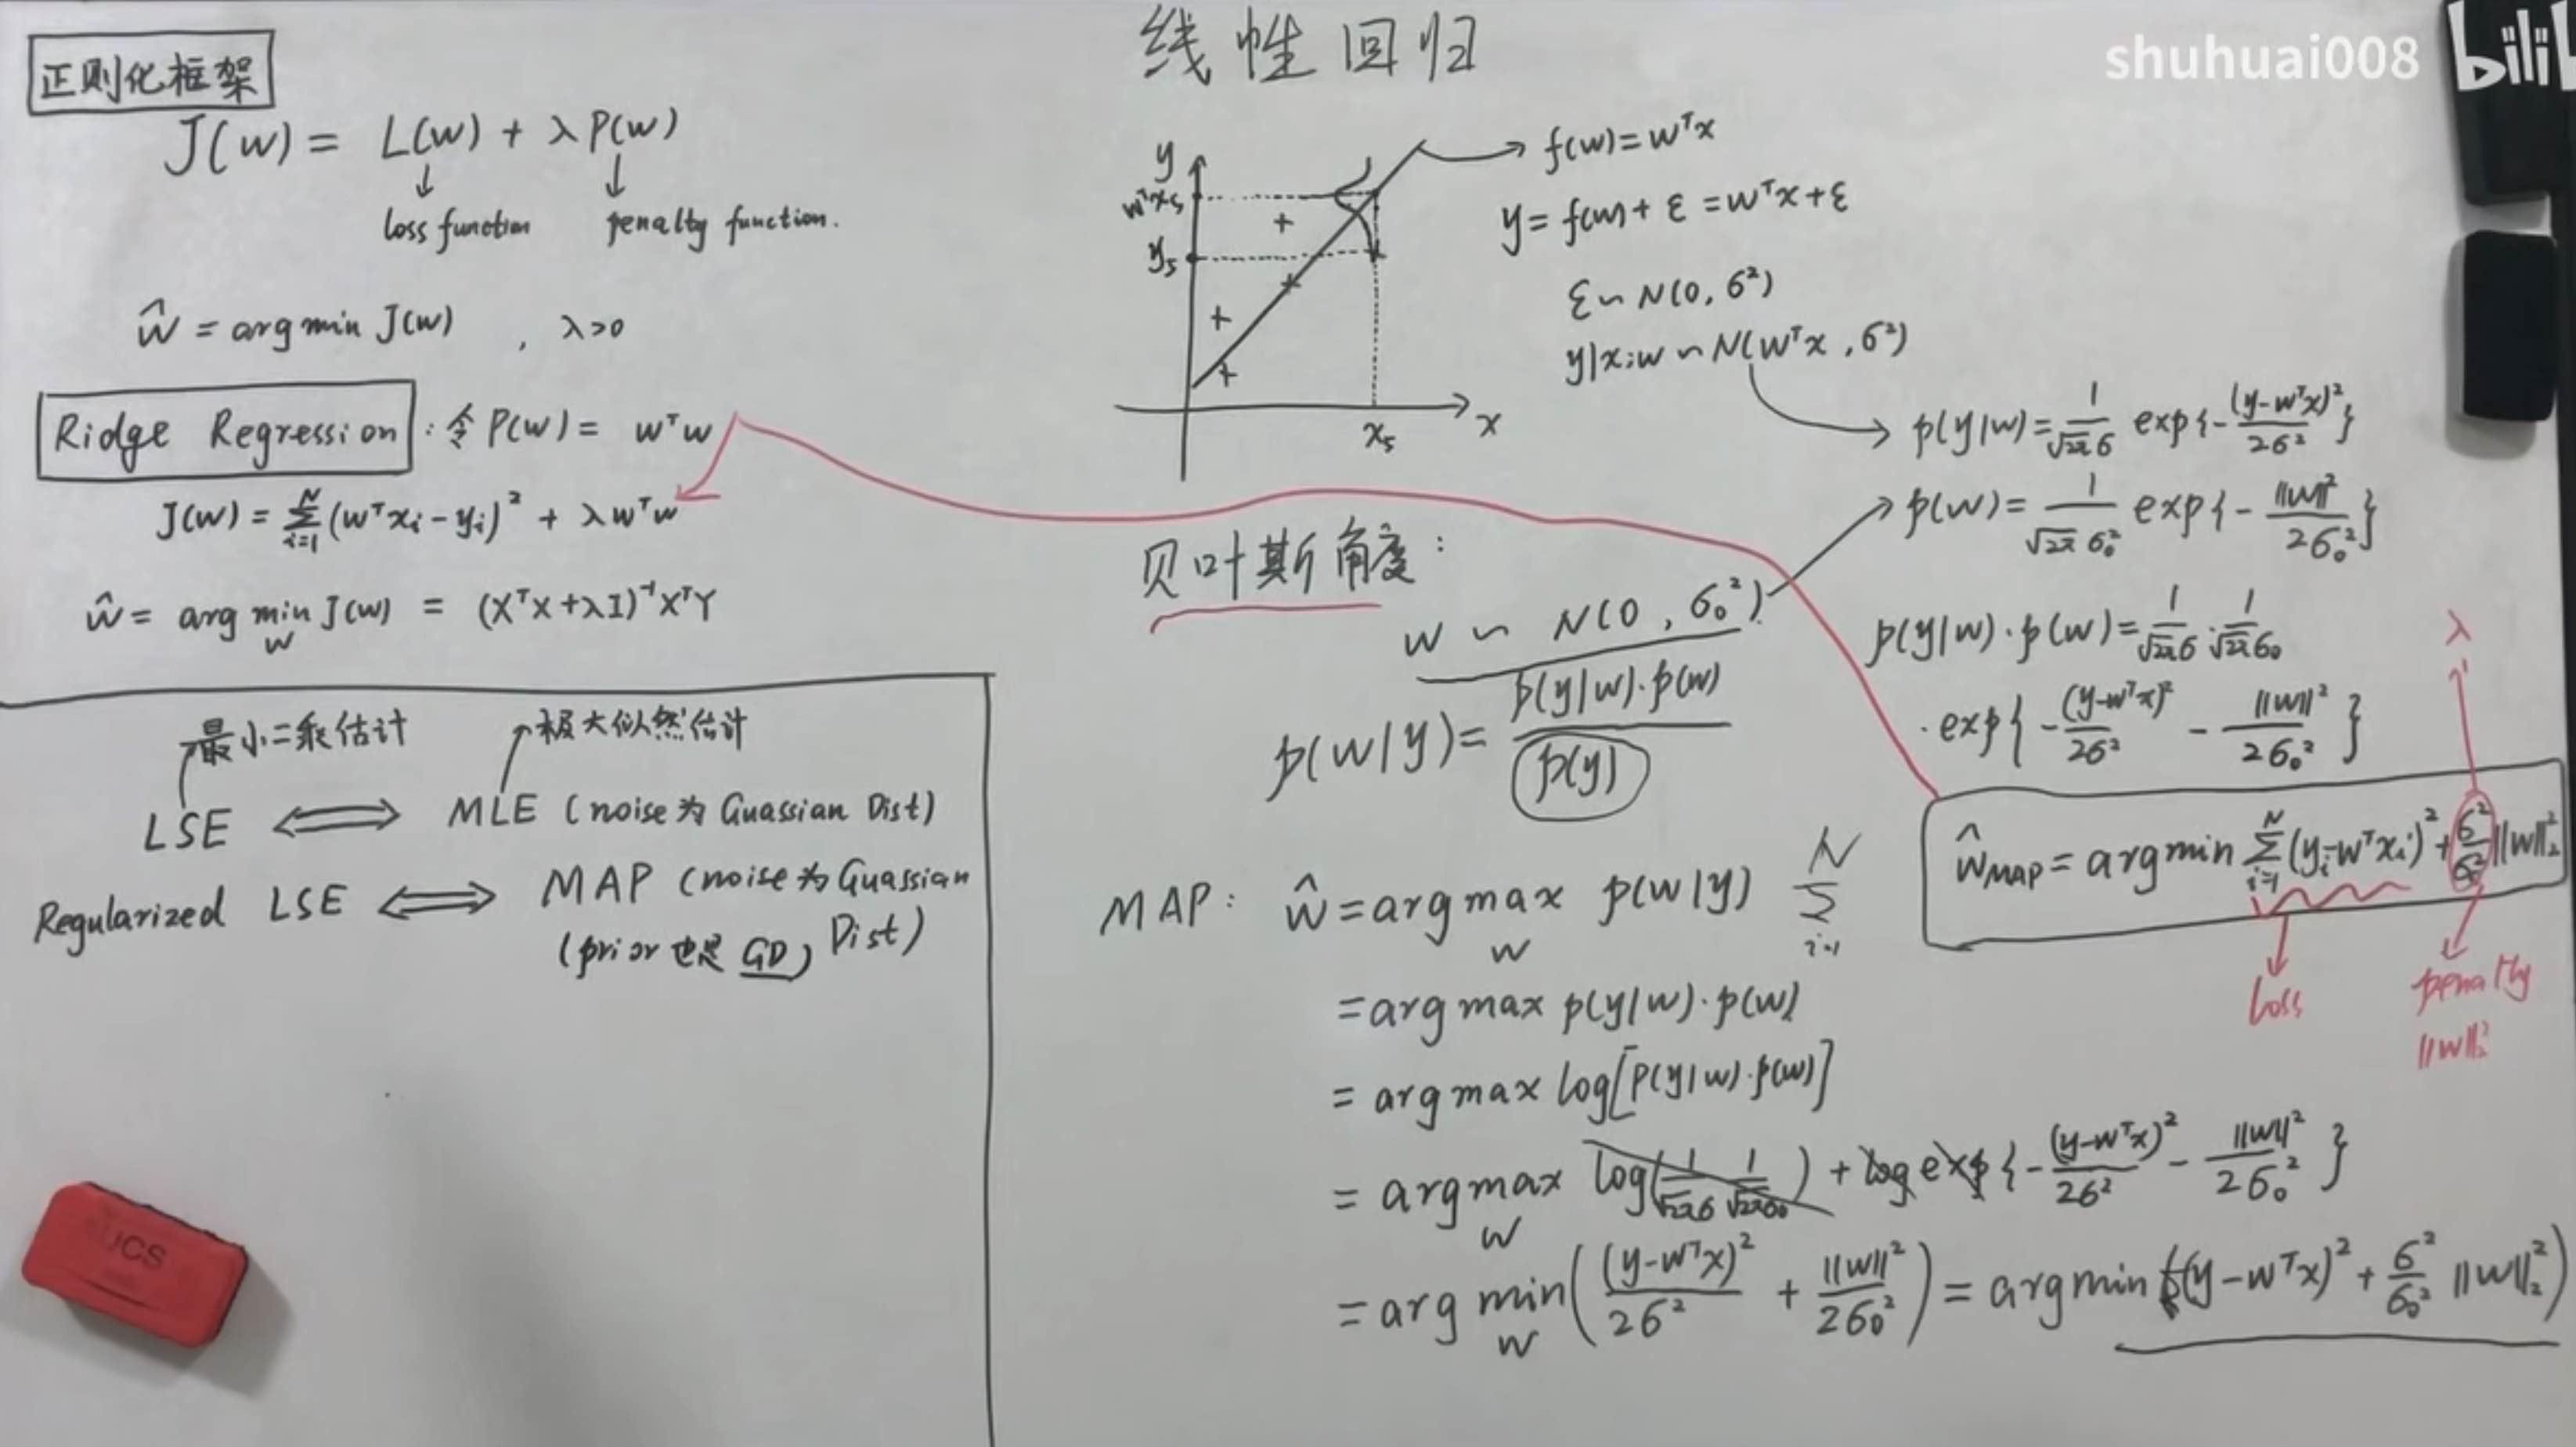 线性回归
shuhuai008
bili
正则化框架
J(w) = L(w) + λP(w)
loss function
penalty function.
ŵ = arg min J(w) , λ>0
Ridge Regression : 令 P(w) = wᵀw
J(w) = ∑ᵢ₌₁ᴺ (wᵀxᵢ - yᵢ)² + λwᵀw
ŵ = arg min_w J(w) = (XᵀX + λI)⁻¹XᵀY
最小二乘估计
极大似然估计
LSE ⟺ MLE (noise为Guassian Dist)
Regularized LSE ⟺ MAP (noise为Guassian
Dist)
(prior也是 GD)
y
wᵀx₅
y₅
x₅
x
f(w) = wᵀx
y = f(w) + ε = wᵀx + ε
ε ~ N(0, σ²)
y|x;w ~ N(wᵀx, σ²)
p(y|w) = 1/(√2π σ) exp{-(y-wᵀx)²/2σ²}
p(w) = 1/(√2π σ₀²) exp{-‖w‖²/2σ₀²}
贝叶斯角度:
w ~ N(0, σ₀²)
p(w|y) = p(y|w)·p(w)/p(y)
p(y|w)·p(w) = 1/(√2π σ) · 1/(√2π σ₀)
· exp{-(y-wᵀx)²/2σ² - ‖w‖²/2σ₀²}
λ
ŵ_MAP = arg min ∑ᵢ₌₁ᴺ (yᵢ-wᵀxᵢ)² + σ²/σ₀² ‖w‖₂²
Loss
penalty
‖w‖₂²
MAP: ŵ = arg max_w p(w|y) ∑ᵢ₌₁ᴺ
= arg max p(y|w)·p(w)
= arg max log[p(y|w)·p(w)]
= arg max_w log(1/(√2π σ) 1/(√2π σ₀)) + log exp{-(y-wᵀx)²/2σ² - ‖w‖²/2σ₀²}
= arg min_w ((y-wᵀx)²/2σ² + ‖w‖²/2σ₀²) = arg min ((y-wᵀx)² + σ²/σ₀² ‖w‖₂²)